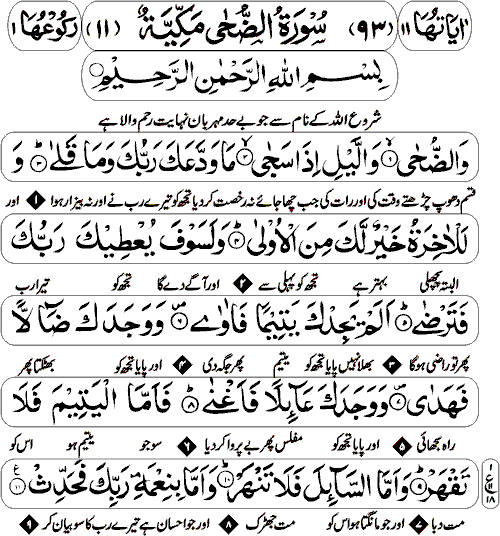 اٰیَاتُهَا ١١ (٩٣) سُوْرَةُ الضُّحٰى مَكِّيَّةٌ (١١) رُكُوْعُهَا ١
بِسْمِ اللهِ الرَّحْمٰنِ الرَّحِيْمِ
شروع اللہ کے نام سے جو بے حد مہربان نہایت رحم والا ہے
وَالضُّحٰى ۙ١ وَالَّيْلِ اِذَا سَجٰى ۙ٢ مَا وَدَّعَكَ رَبُّكَ وَمَا قَلٰى ؕ٣ وَ
قسم دھوپ چڑھتے وقت کی اور رات کی جب چھا جائے نہ رخصت کر دیا تجھ کو تیرے رب نے اور نہ بیزار ہوا ۱ اور
لَلْاٰخِرَةُ خَيْرٌ لَّكَ مِنَ الْاُوْلٰى ؕ٤ وَلَسَوْفَ يُعْطِيْكَ رَبُّكَ
البتہ پچھلی بہتر ہے تجھ کو پہلی سے ۲ اور آگے دے گا تجھ کو تیرا رب
فَتَرْضٰى ؕ٥ اَلَمْ يَجِدْكَ يَتِيْمًا فَاٰوٰى ۪٦ وَوَجَدَكَ ضَآلًّا
پھر تو راضی ہو گا ۳ بھلا نہیں پایا تجھ کو یتیم پھر جگہ دی ۴ اور پایا تجھ کو بھٹکتا پھر
فَهَدٰى ۪٧ وَوَجَدَكَ عَآئِلًا فَاَغْنٰى ؕ٨ فَاَمَّا الْيَتِيْمَ فَلَا
راہ سجھائی ۵ اور پایا تجھ کو مفلس پھر بے پروا کر دیا ۶ سو جو یتیم ہو اس کو
تَقْهَرْ ؕ٩ وَاَمَّا السَّآئِلَ فَلَا تَنْهَرْ ؕ١٠ وَاَمَّا بِنِعْمَةِ رَبِّكَ فَحَدِّثْ ١١ ع ١ ١١ ١٨
مت دبا ۷ اور جو مانگتا ہو اس کو مت جھڑک ۸ اور جو احسان ہے تیرے رب کا سو بیان کر ۹